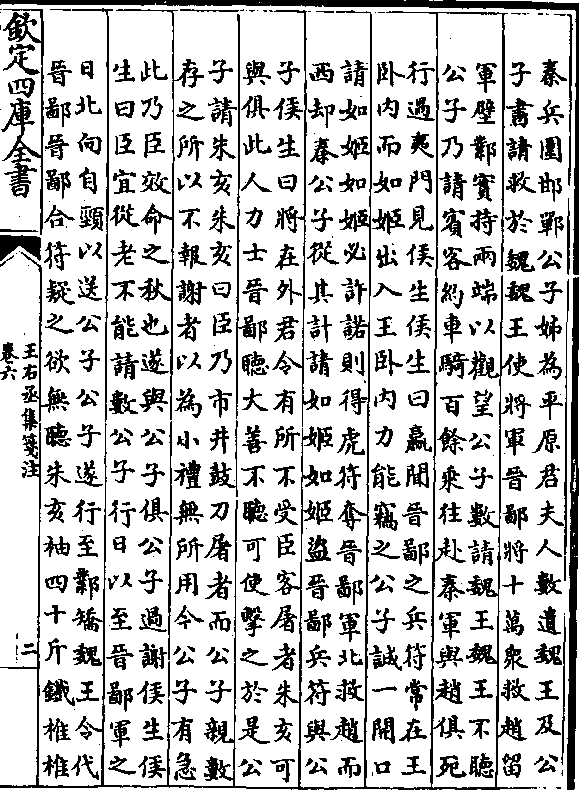 秦兵圍邯鄲公子姊為平原君夫人數遺魏王及公
子書請救於魏魏王使將軍晉鄙將十萬衆救趙留
軍壁鄴實持兩端以觀望公子數請魏王魏王不聽
公子乃請賓客約車騎百餘乘往赴秦軍與趙俱死
行過夷門見侯生侯生曰嬴聞晉鄙之兵符常在王
卧内而如姬出入王卧内力能竊之公子誠一開口
請如姬如姬必許諾則得虎符奪晉鄙軍北救趙而
西却秦公子從其計請如姬如姬盜晉鄙兵符與公
子侯生曰將在外君令有所不受臣客屠者朱亥可
與俱此人力士晉鄙聽大善不聽可使擊之於是公
子請朱亥朱亥曰臣乃市井鼓刀屠者而公子親數
存之所以不報謝者以為小禮無所用今公子有急
此乃臣效命之秋也遂與公子俱公子過謝侯生侯
生曰臣宜從老不能請數公子行日以至晉鄙軍之
日北向自頸以送公子公子遂行至鄴矯魏王令代
晉鄙晉鄙合符疑之欲無聽朱亥袖四十斤鐵椎椎
欽定四庫全書
王右丞集箋注
卷六
二